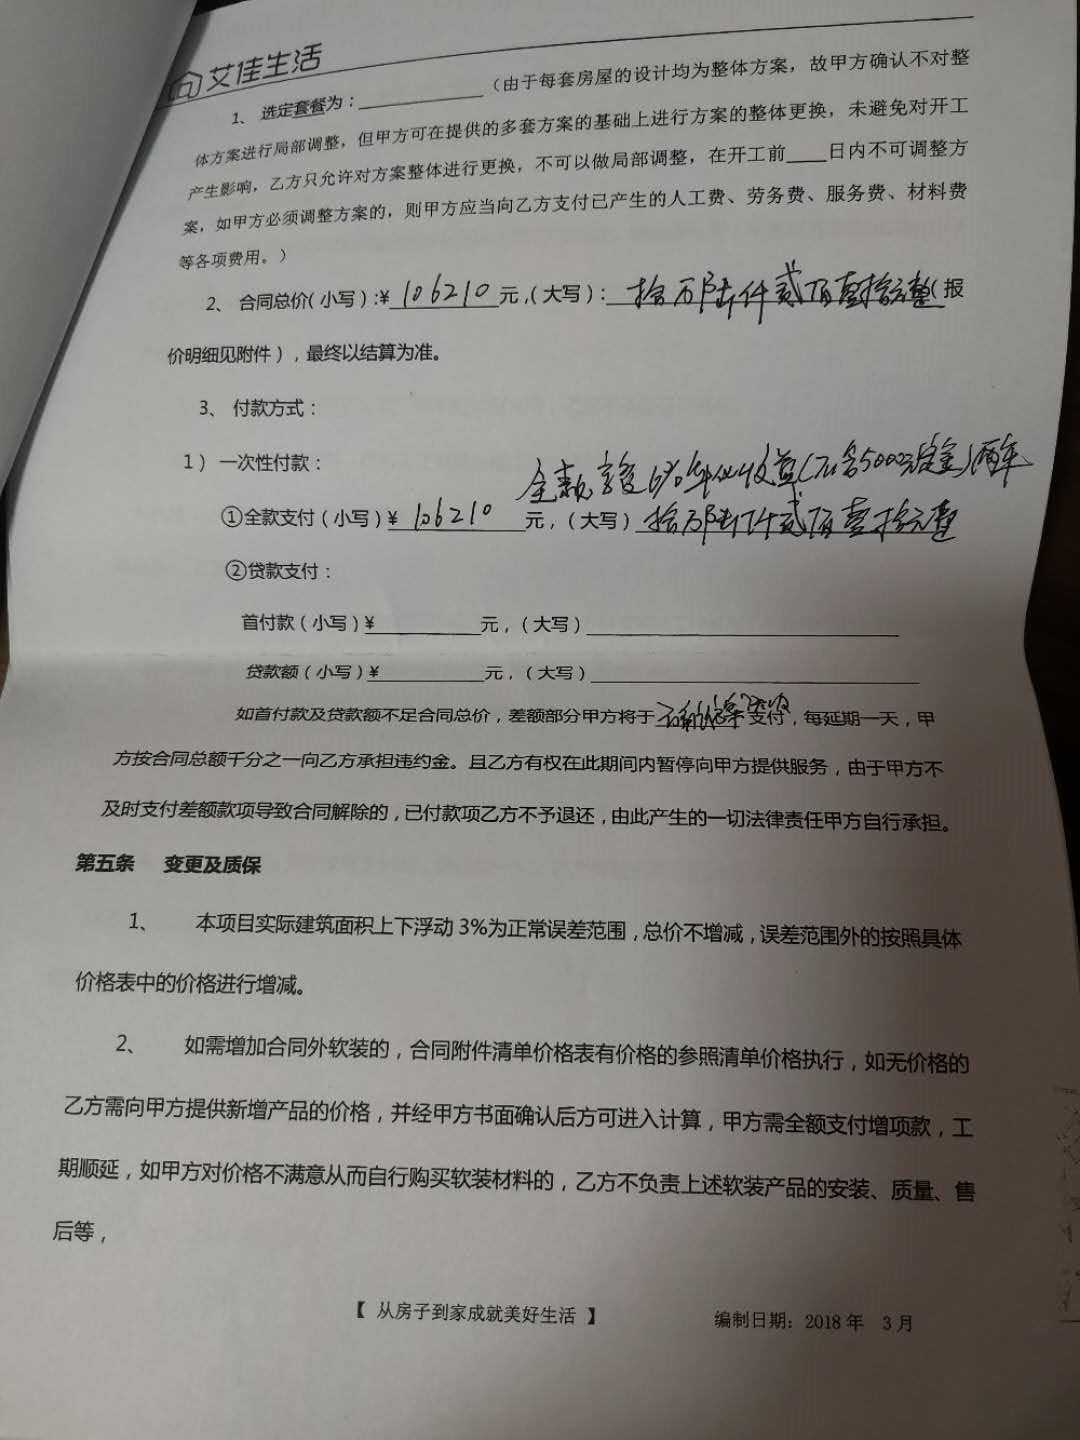 艾佳生活
1、 选定套餐为：____________（由于每套房屋的设计均为整体方案，故甲方确认不对整
体方案进行局部调整，但甲方可在提供的多套方案的基础上进行方案的整体更换，未避免对开工
产生影响，乙方只允许对方案整体进行更换，不可以做局部调整，在开工前____日内不可调整方
案，如甲方必须调整方案的，则甲方应当向乙方支付已产生的人工费、劳务费、服务费、材料费
等各项费用。）
2、 合同总价（小写）:¥ 106210 元，（大写）: 拾万陆仟贰佰壹拾元整（报
价明细见附件），最终以结算为准。
3、 付款方式：
1） 一次性付款：
全款享受6%年化收益（不含5000元定金）两年
①全款支付（小写）¥ 106210 元，（大写）拾万陆仟贰佰壹拾元整
②贷款支付：
首付款（小写）¥__________元，（大写）____________________
贷款额（小写）¥__________元，（大写）____________________
如首付款及贷款额不足合同总价，差额部分甲方将于 支付，每延期一天，甲
方按合同总额千分之一向乙方承担违约金。且乙方有权在此期间内暂停向甲方提供服务，由于甲方不
及时支付差额款项导致合同解除的，已付款项乙方不予退还，由此产生的一切法律责任甲方自行承担。
第五条 变更及质保
1、 本项目实际建筑面积上下浮动3%为正常误差范围，总价不增减，误差范围外的按照具体
价格表中的价格进行增减。
2、 如需增加合同外软装的，合同附件清单价格表有价格的参照清单价格执行，如无价格的
乙方需向甲方提供新增产品的价格，并经甲方书面确认后方可进入计算，甲方需全额支付增项款，工
期顺延，如甲方对价格不满意从而自行购买软装材料的，乙方不负责上述软装产品的安装、质量、售
后等，
【 从房子到家成就美好生活 】 编制日期：2018年 3月